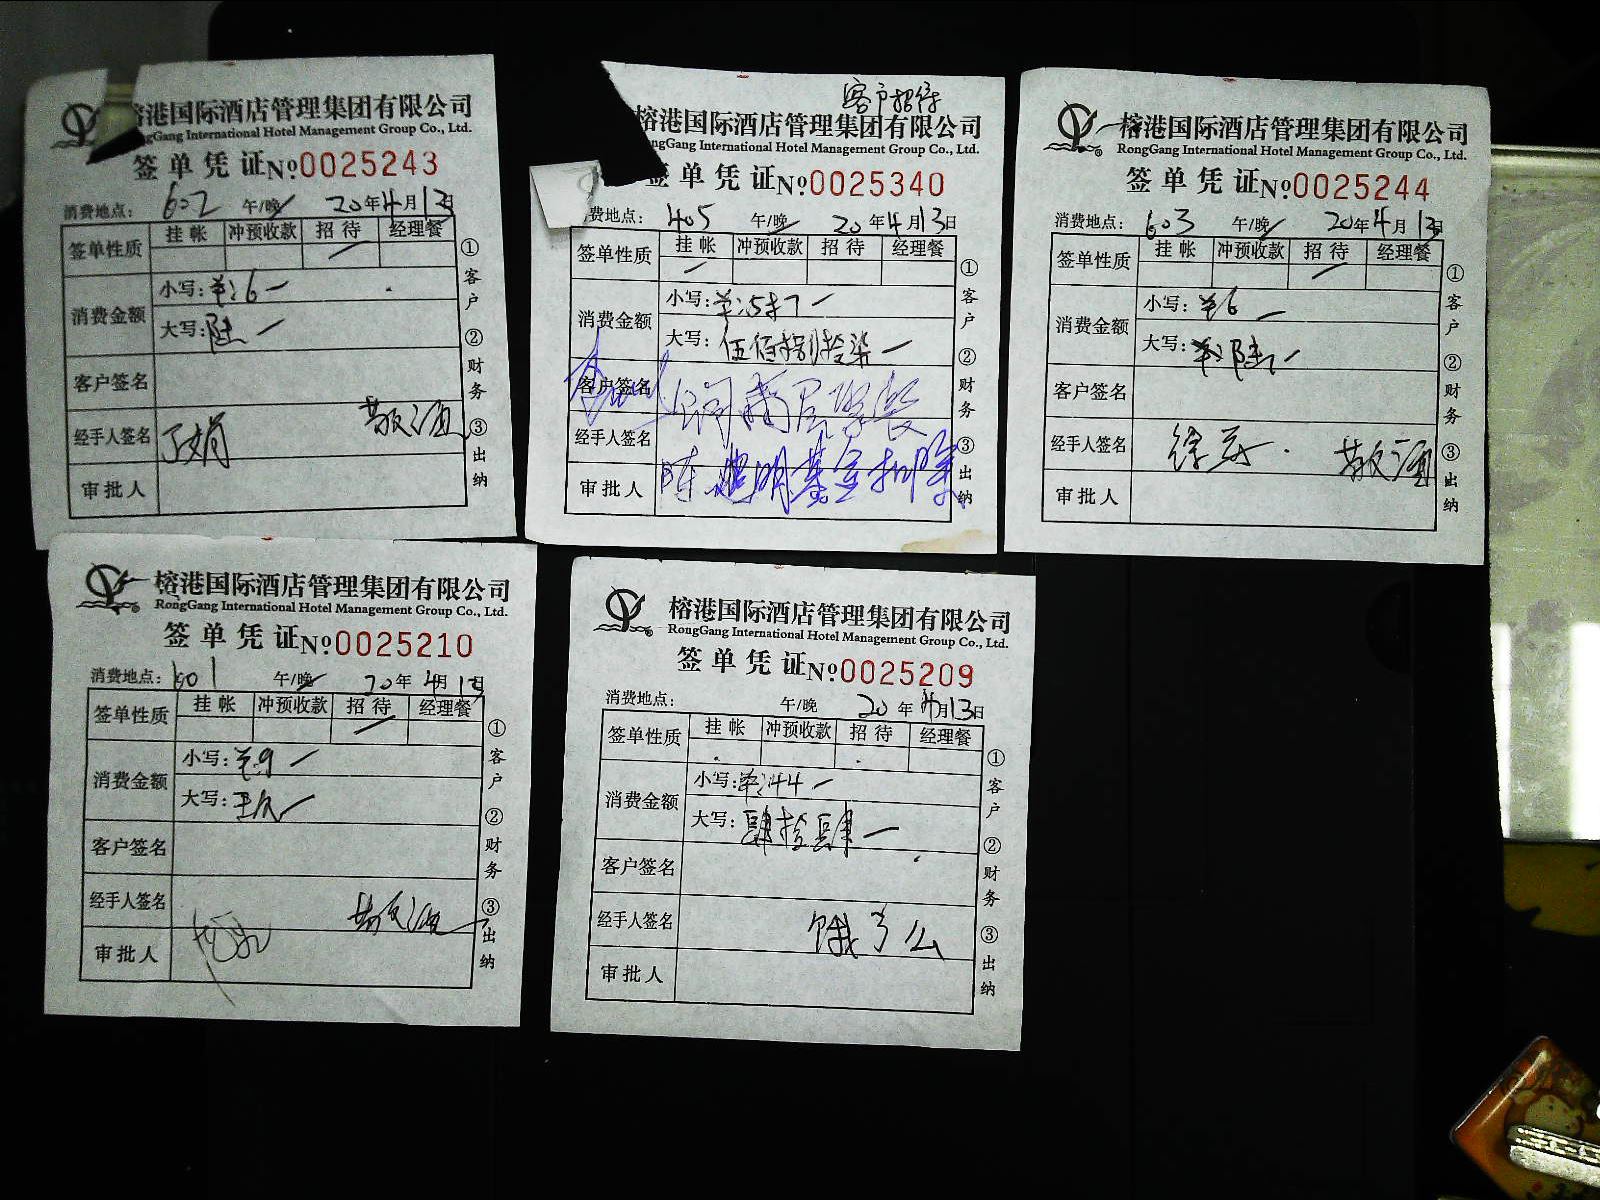 港国际酒店管理集团有限公司
gGang International Hotel Management Group Co., Ltd.
签单凭证№0025243
消费地点：602 午/晚 20年4月13日
签单性质 挂帐 冲预收款 招待 经理餐
消费金额 小写：¥:6一
大写：陆一
客户签名
经手人签名 敬酒
审批人
①客户 ②财务 ③出纳
客户招待
榕港国际酒店管理集团有限公司
gGang International Hotel Management Group Co., Ltd.
签单凭证№0025340
消费地点：405 午/晚 20年4月13日
签单性质 挂帐 冲预收款 招待 经理餐
消费金额 小写：¥:587一
大写：伍佰捌拾柒一
客户签名
经手人签名
陈 明基金扣除
审批人
①客户 ②财务 ③出纳
榕港国际酒店管理集团有限公司
RongGang International Hotel Management Group Co., Ltd.
签单凭证№0025244
消费地点：603 午/晚 20年4月13日
签单性质 挂帐 冲预收款 招待 经理餐
消费金额 小写：¥6一
大写：陆一
客户签名
经手人签名 敬酒
审批人
①客户 ②财务 ③出纳
榕港国际酒店管理集团有限公司
RongGang International Hotel Management Group Co., Ltd.
签单凭证№0025210
消费地点：601 午/晚 20年4月13日
签单性质 挂帐 冲预收款 招待 经理餐
消费金额 小写：¥:9一
大写：玖一
客户签名
经手人签名 敬酒
审批人
①客户 ②财务 ③出纳
榕港国际酒店管理集团有限公司
RongGang International Hotel Management Group Co., Ltd.
签单凭证№0025209
消费地点： 午/晚 20年4月13日
签单性质 挂帐 冲预收款 招待 经理餐
消费金额 小写：¥:44一
大写：肆拾肆一
客户签名
经手人签名 饿了么
审批人
①客户 ②财务 ③出纳